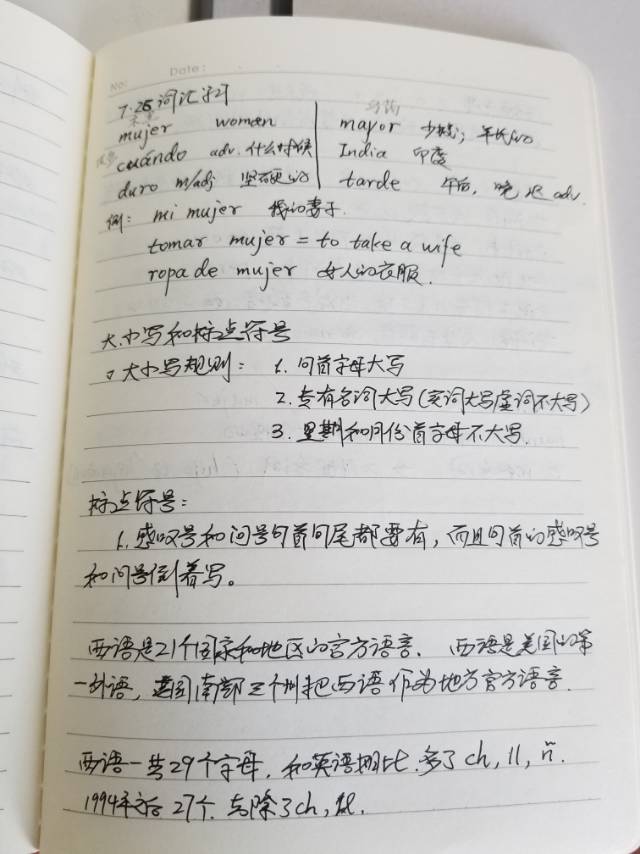 No: Date:
7.25 词汇学习
mujer women
mayor 少校; 年长的
cuándo adv. 什么时候
India 印度
duro m/adj 坚硬的
tarde 午后, 晚, 迟 adv.
例: mi mujer 我的妻子.
tomar mujer = to take a wife
ropa de mujer 女人的衣服.
大小写和标点符号
大小写规则: 1. 句首字母大写
2. 专有名词大写(实词大写虚词不大写)
3. 星期和月份首字母不大写.
标点符号:
1. 感叹号和问号句首句尾都要有, 而且句首的感叹号
和问号倒着写。
西语是21个国家和地区的官方语言. 西语是美国的第
一外语, 美国南部三个州把西语作为地方官方语言.
西语一共29个字母, 和英语相比, 多了 ch, ll, ñ.
1994年后 27个. 去除了ch, ll.